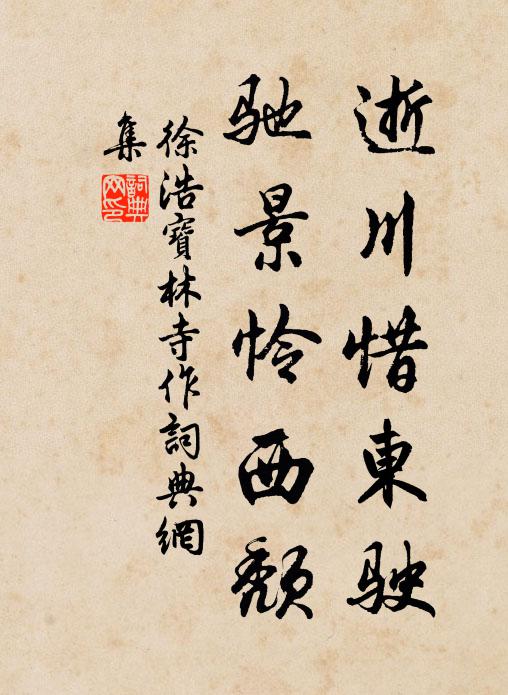 逝川惜東駛
馳景怜西頽
徐浩寶林寺作詞典網
集
詞典
网印